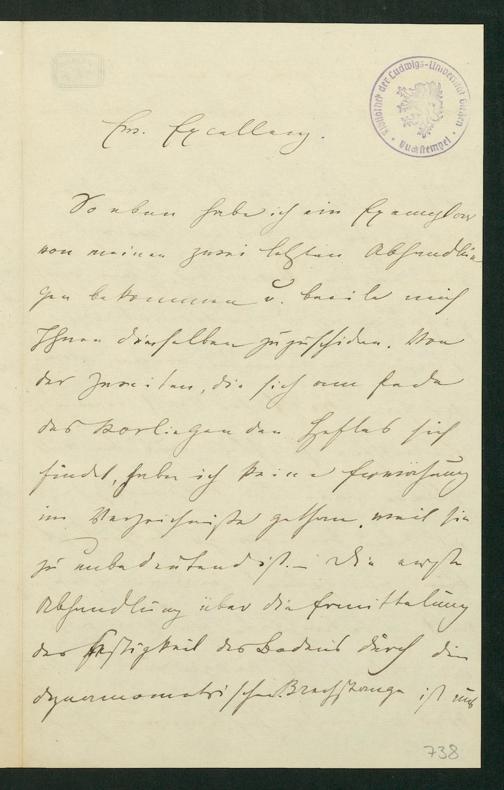 Bibliothek der Ludwigs-Universität Gießen
Buchstempel
Ew. Excellenz.
So eben habe ich ein Exemplar
von meinen zwei letzten Abhandlun-
gen bekommen u. beeile mich
Ihnen dieselben zuzuschicken. Von
der zweiten, die sich am Ende
des vorliegenden Heftes sich
findet, habe ich keine Erwähnung
im Verzeichniße gethan, weil sie
zu unbedeutend ist. – Die erste
Abhandlung über die Ermittelung
der Festigkeit des Bodens durch die
dynamometrische Brechstange ist
738